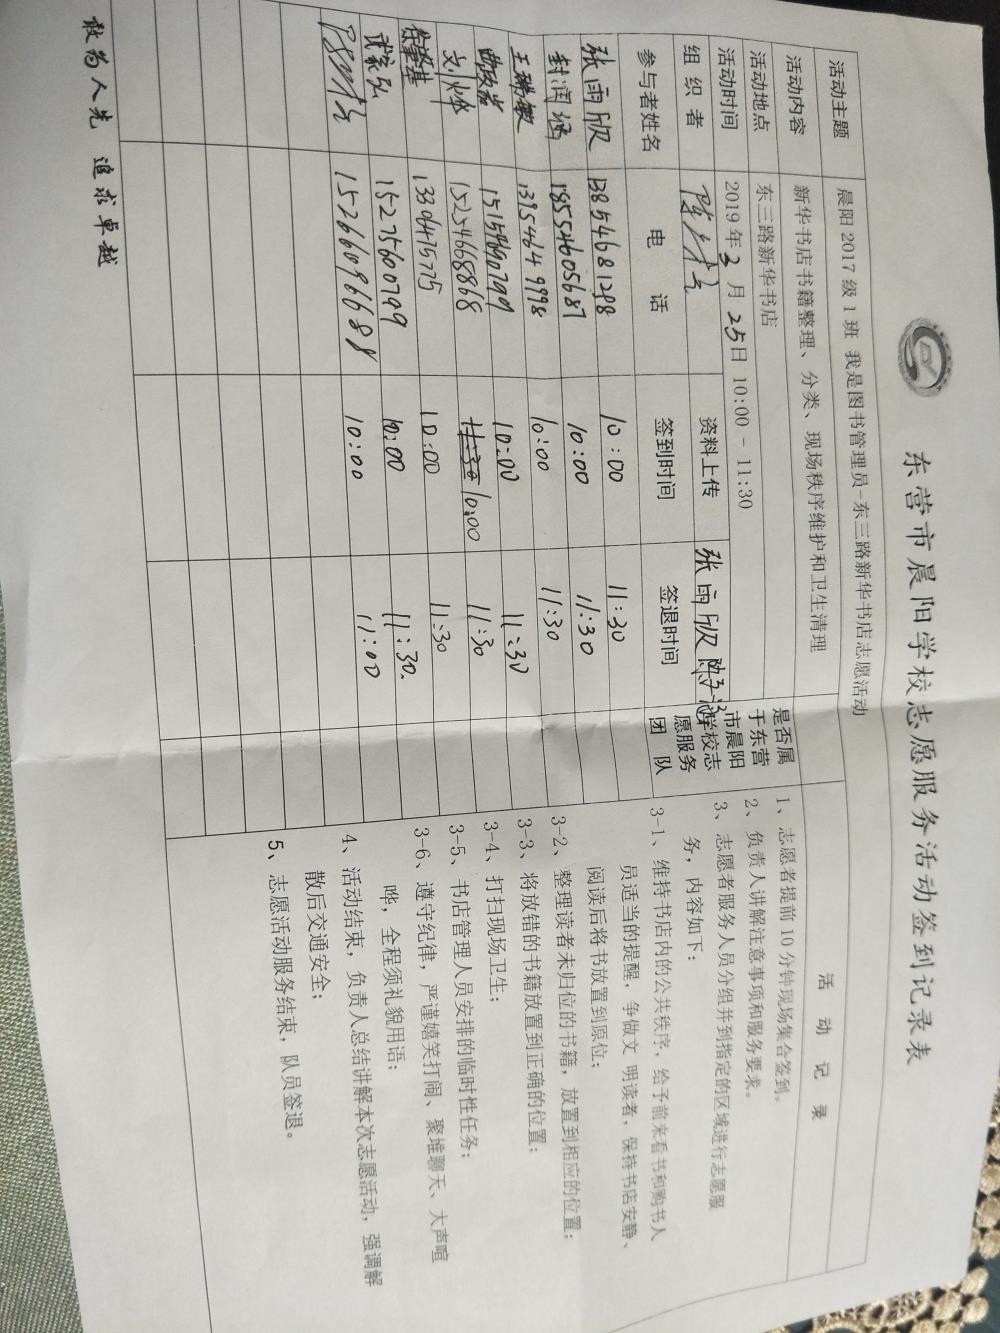 东营市晨阳学校志愿服务活动签到记录表
活动主题 晨阳 2017 级 1 班 我是图书管理员-东三路新华书店志愿活动
活动内容 新华书店书籍整理、分类、现场秩序维护和卫生清理
活动地点 东三路新华书店
活动时间 2019 年 3 月 25 日 10:00 - 11:30
组 织 者 资料上传 张雨欣
参与者姓名 电 话 签到时间 签退时间
是否属
于东营
市晨阳
学校志
愿服务
团 队
张雨欣 13854681298 10:00 11:30
封润涵 18554605687 10:00 11:30
王瑞敏 13954649998 10:00 11:30
15159690799 10:00 11:30
刘烨 15254668868 11:30 10:00 11:30
13306475775 10:00 11:30
15275600799 10:00 11:30.
15266096688 10:00 11:00
活 动 记 录
1、志愿者提前 10 分钟现场集合签到。
2、负责人讲解注意事项和服务要求。
3、志愿者服务人员分组并到指定的区域进行志愿服
务，内容如下：
3-1、维持书店内的公共秩序，给予前来看书和购书人
员适当的提醒，争做文 明读者，保持书店安静、
阅读后将书放置到原位；
3-2、整理读者未归位的书籍，放置到相应的位置；
3-3、将放错的书籍放置到正确的位置；
3-4、打扫现场卫生；
3-5、书店管理人员安排的临时性任务；
3-6、遵守纪律，严谨嬉笑打闹、聚堆聊天、大声喧
哗，全程须礼貌用语；
4、活动结束，负责人总结讲解本次志愿活动，强调解
散后交通安全；
5、志愿活动服务结束，队员签退。
敢为人先 追求卓越